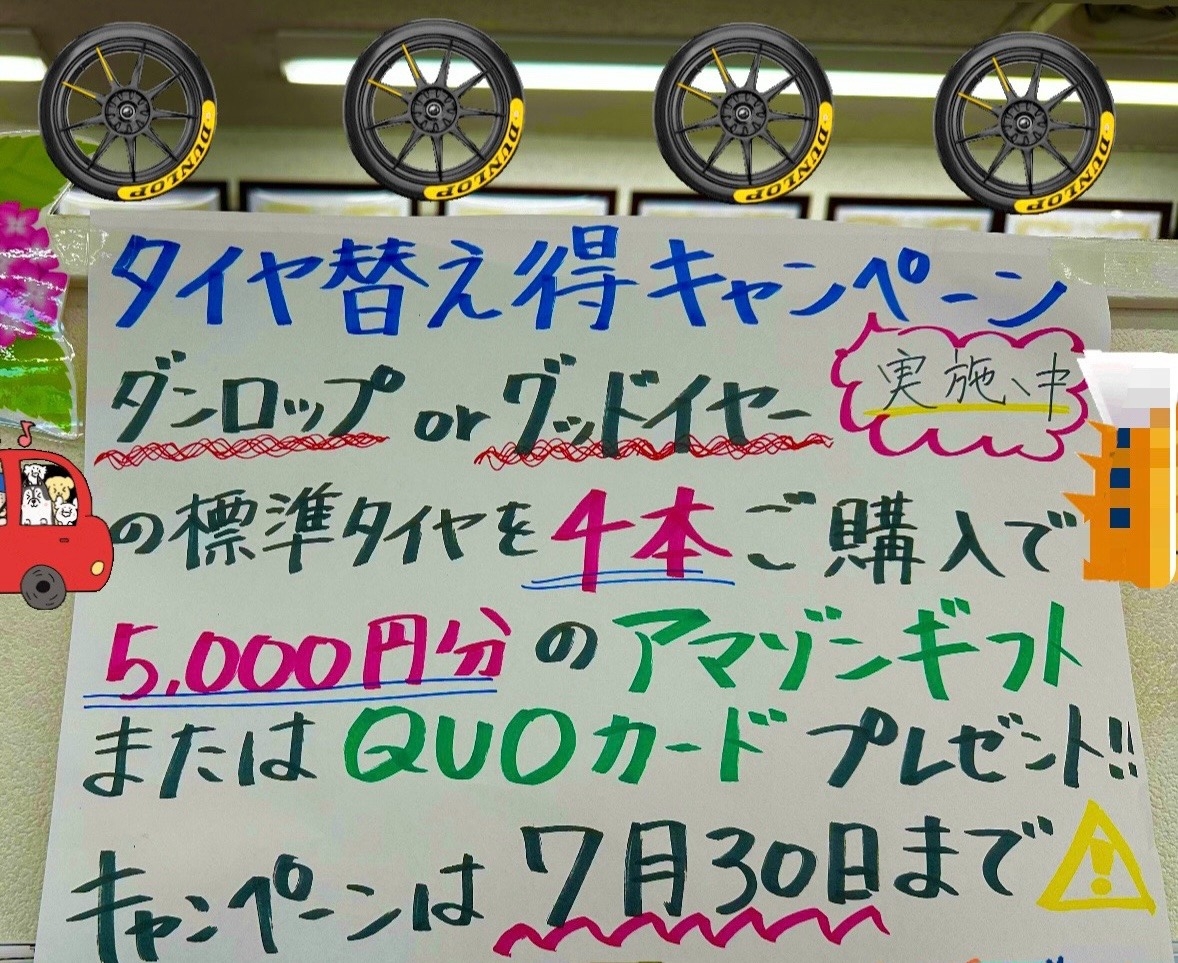 DUNLOP DUNLOP DUNLOP DUNLOP
タイヤ替え得キャンペーン
実施中
ダンロップ or グッドイヤー
の標準タイヤを4本ご購入で
5,000円分のアマゾンギフト
またはQUOカードプレゼント!!
キャンペーンは7月30日まで